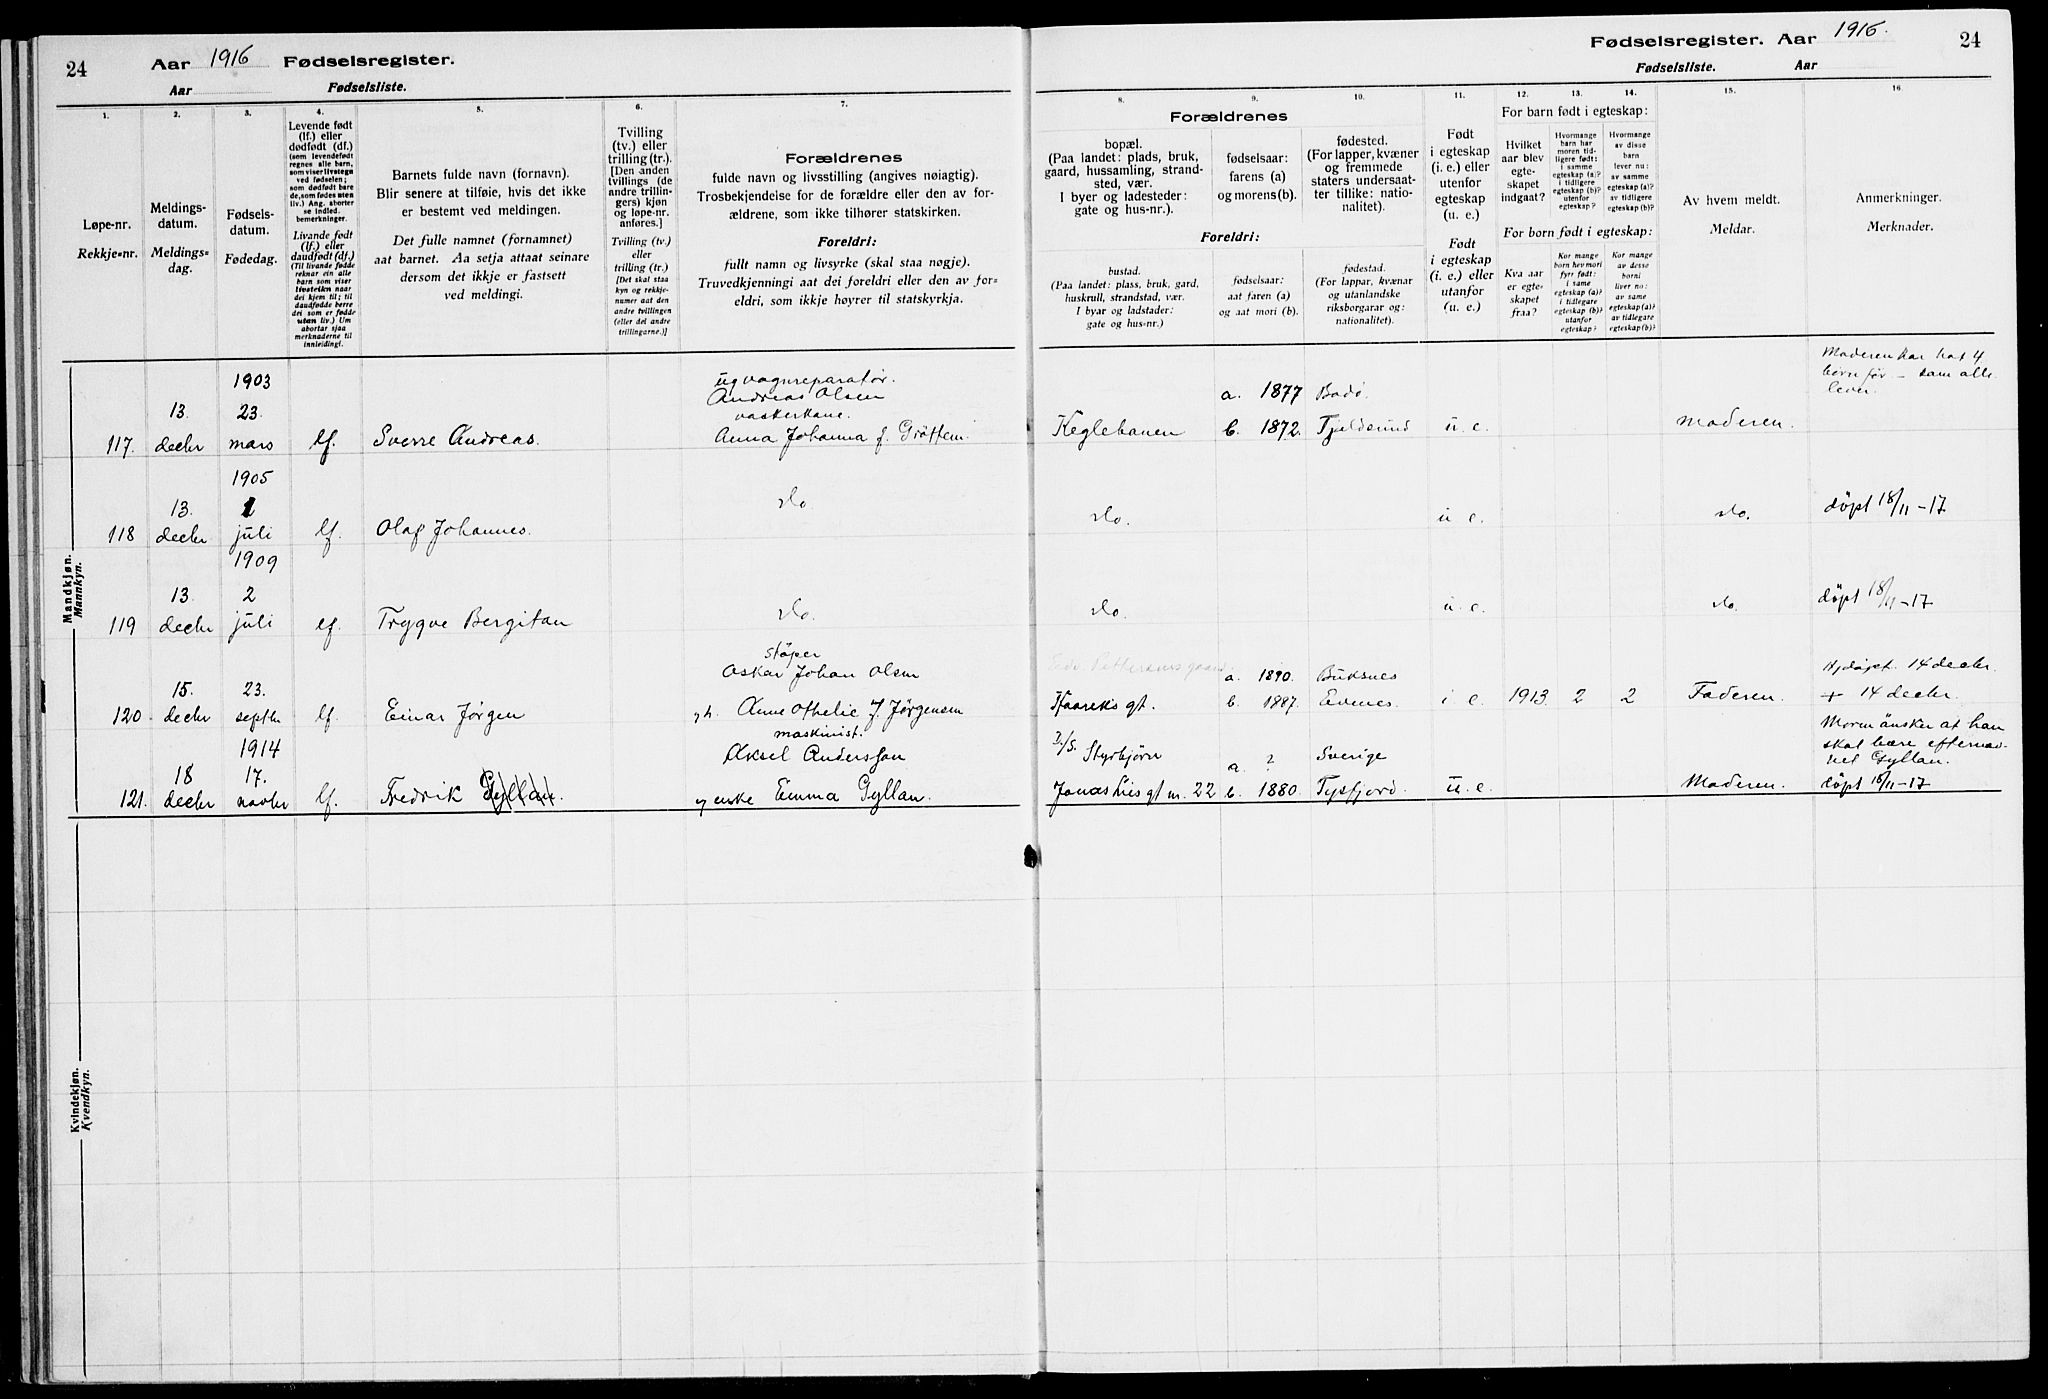 24
Aar 1916 Fødselsregister.
Aar Fødselsliste.
Fødselsregister. Aar 1916.
24
Fødselsliste. Aar
1. 2. 3. 4. 5. 6. 7.
Løpe-nr.
Rekkje=nr.
Meldings-
datum.
Meldings=
dag.
Fødsels-
datum.
Fødedag.
Levende født
(lf.) eller
dødfødt (df.)
(som levendefødt
regnes alle barn,
som viser livstegn
ved fødselen;
som dødfødt bare
de, som fødes uten
liv.) Ang. aborter
se indled.
bemerkninger.
Livande født
(lf.) eller
daudfødt (df.)
(Til livande fødde
reknar ein alle
barn som viser
livsteikn naar
dei kjem til; til
daudfødde berre
dei som er fødde
utan liv.) Um
abortar sjaa
merknaderne til
innleidingi.
Barnets fulde navn (fornavn).
Blir senere at tilføie, hvis det ikke
er bestemt ved meldingen.
Det fulle namnet (fornamnet)
aat barnet. Aa setja attaat seinare
dersom det ikkje er fastsett
ved meldingi.
Tvilling
(tv.) eller
trilling (tr.).
[Den anden
tvillings (de
andre trillin-
gers) kjøn
og løpe-nr.
anføres.]
Tvilling (tv.)
eller
trilling (tr.)
[Det skal staa
kyn og rekkje-
numer aat den
andre tvillingen
(eller dei andre
trillingarne.)]
Forældrenes
fulde navn og livsstilling (angives nøiagtig).
Trosbekjendelse for de forældre eller den av for-
ældrene, som ikke tilhører statskirken.
Foreldri:
fullt namn og livsyrke (skal staa nøgje).
Truvedkjenningi aat dei foreldri eller den av for=
eldri, som ikkje høyrer til statskyrkja.
8. 9. 10. 11. 12. 13. 14. 15. 16.
Forældrenes
bopæl.
(Paa landet: plads, bruk,
gaard, hussamling, strand-
sted, vær.
I byer og ladesteder:
gate og hus-nr.).
fødselsaar:
farens (a)
og morens (b).
fødested.
(For lapper, kvæner
og fremmede
staters undersaat-
ter tillike: natio-
nalitet).
Foreldri:
bustad.
(Paa landet: plass, bruk, gard,
huskrull, strandstad, vær.
I byar og ladstader:
gate og hus=nr.)
fødselsaar:
aat faren (a)
og aat mori (b).
fødestad.
(For lappar, kvænar
og utanlandske
riksborgarar og:
nationalitet).
Født
i egteskap
(i. e.) eller
utenfor
egteskap
(u. e.)
Født
i egteskap
(i. e.) eller
utanfor
(u. e.)
For barn født i egteskap:
Hvilket
aar blev
egte-
skapet
indgaat?
Hvormange
barn har
moren tid-
ligere født:
i samme
egteskap (a)?
i tidligere
egteskap (b)?
utenfor
egteskap?
Hvormange
av disse
barn
lever nu:
av samme
egteskap (a)?
av tidligere
egteskap (b)?
For born født i egteskap:
Kva aar
er egte-
skapet
fraa?
Kor mange
born hev mori
fyrr født:
i same
egteskap (a)?
i tidlegare
egteskap (b)?
utanfor
egteskap?
Kor mange
av desse
borni
liver no:
av same
egteskap (a)?
av tidlegare
egteskap (b)?
Av hvem meldt.
Meldar.
Anmerkninger.
Merknader.
Mandkjøn.
Mannkyn.
117. 13. decbr 1903 23. mars lf. Sverre Andreas.
ug vognreparatør.
Andreas Olsen
vaskerkone.
Anna Johanna f. Grøttem.
Keglebanen a. 1877 Bodø.
b. 1872. Tjeldsund u. e. Moderen.
Moderen har hat 4
børn før – som alle
lever.
118 13. decbr 1905 1 juli lf. Olaf Johannes. do.
do. u. e. do. døpt 18/11–17
119 13. decbr 1909 2 juli lf. Trygve Bergitan do.
do. u. e. do. døpt 18/11–17
120 15. decbr 23. septbr lf. Einar Jørgen
støper
Oskar Johan Olsen
gh. Anne Othelie f. Jørgensen
Kaareks gt. a. 1890. Buksnes
b. 1887. Evenes. i e. 1913. 2 2 Faderen.
Hjdøpt 14 decbr.
+ 14 decbr.
121. 18 decbr 1914 17. novbr lf. Fredrik Gyllan.
maskinist.
Aksel Andersson
g enke Emma Gyllan.
D/S. Styrbjörn a. ? Sverige
Jonas Lies gt nr. 22 b. 1880. Tysfjord. u. e. Moderen.
Moren ønsker at han
skal bære efternav-
net Gyllan.
døpt 18/11–17
Kvindekjøn.
Kvendkyn.